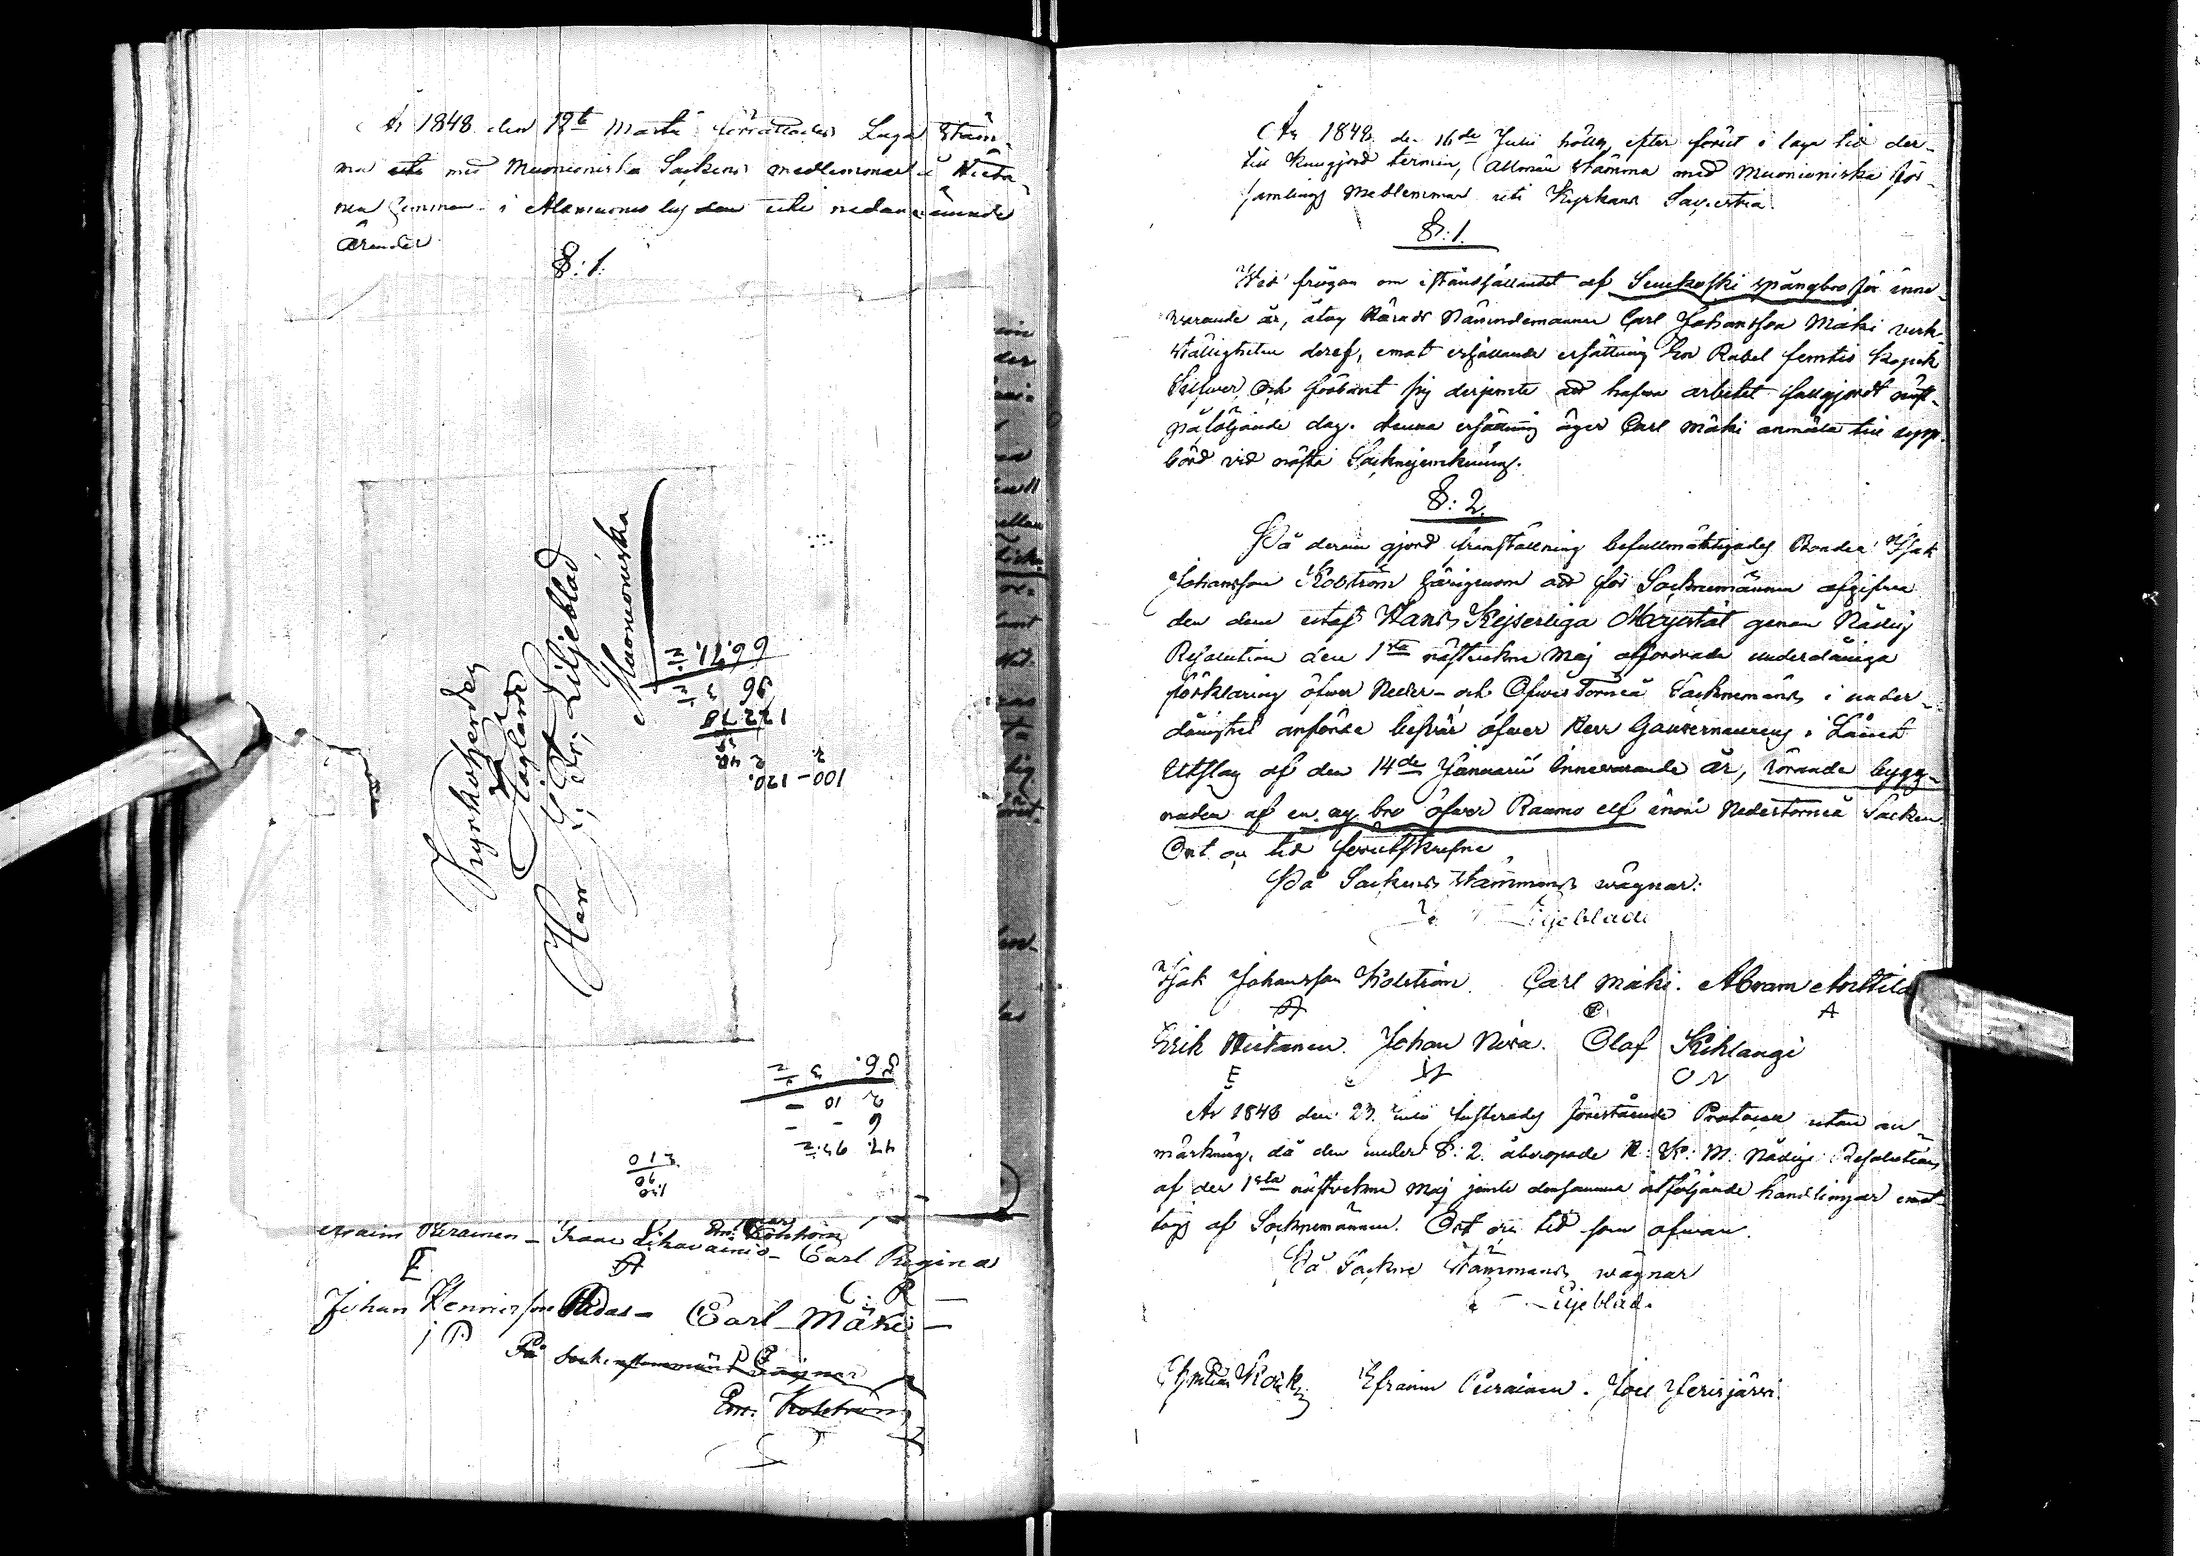 År 1848 den 19de Martii förrättades Laga Stäm-
ma med Muonioniska Sockens medlemmar i Hieta-
nen hemman i Alamuonio by uti nedannämnde
Ärender
§: 1.
Kyrkoherden
Höglärde
Herr Liljeblad
Muonioniska
66.71.½
96 3 ½
122 78
2 48
100-120.
56. 3 ½
2 10 -
6 - -
47. 93.½
120
90
210
Keränen - Isaac Liikavainio - Carl Regina
E
C. R
Johan Hennrickson - Carl Mäki -
j P
På sockenstämmans vägnar
Em. Kolström
År 1848 den 16de Julii hölts, efter förut i laga tid der-
till kungjord termin, Allmän Stämma med Muonioniska för-
samlings Medlemmar uti Kyrkans Sacristia.
§: 1.
Wid frågan om iståndsättandet af spångbro för inne-
warande år, åtog Härads Nämndemannen Carl Johansson Mäki verk-
ställigheten deraf, emot erhållande ersättning En Rubel femtio kopek
Silfver, och förbant sig derjemte att hafva arbetet fullgjordt näst-
påföljande dag. denna ersättning äger Carl Mäki anmäla till upp-
börd vid nästa Sockne
§: 2.
På derom gjord framställning befullmäktigades Bonden Isak
Johansson Kolström härigenom att för Socknemännen afgifva
den dem utaf Hans Kejserliga Majestät genom Nådig
Resolution den 1sta nästvekne Maj affordrade underdåniga
förklaring öfver Neder- och Öfver Torneå Socknemäns i under-
dånighet anförde besvär öfver Herr Gouverneurens i Länet
Utslag af den 14de Januarii innevarande år, rörande bygg-
naden af en ny bro öfver Raumo elf inom Nedertorneå Socken.
Ort och tid förutskrefne
På Sockens Stämmans wägnar:
Liljeblad
Isak Johansson Kolström. Carl Mäki. Abram Anttila
A
Erik Hietanen. Johan Niva. Olof Kihlangi
E
O N
År 1848 den 23. Julii justerades förestående Protocoll utan an-
märkning, då den under §: 2. åberopade H: K: M: Nådige Resolution
af den 1sta nästvekne Maj jemte densamma åtföljande handlingar emot-
togs af Socknemännen. Ort och tid som ofwan.
På Sockne Stämmans wägnar
Liljeblad.
Efraim Keräinen. Joel Jerisjärvi.